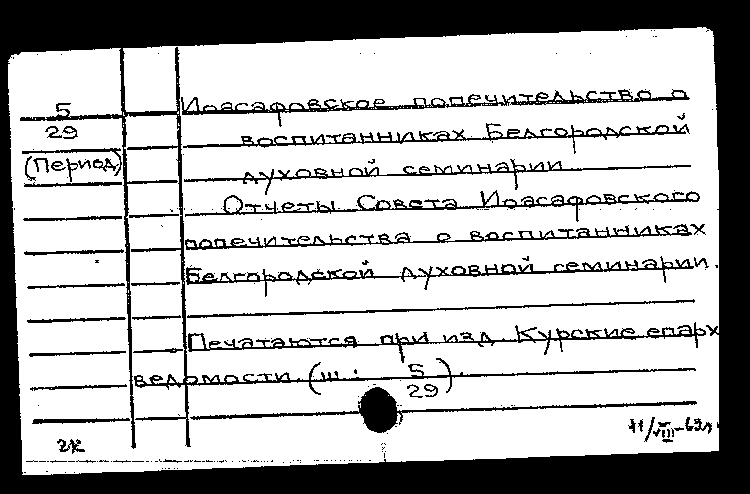 5
29
(Период)
Иоасафовское попечительство о
воспитанниках Белгородской
духовной семинарии
Отчеты Совета Иоасафовского
попечительства о воспитанниках
Белгородской духовной семинарии.
Печатаются при изд. Курские епарх
ведомости. (ш: 5
29).
2к
11/VIII-69г